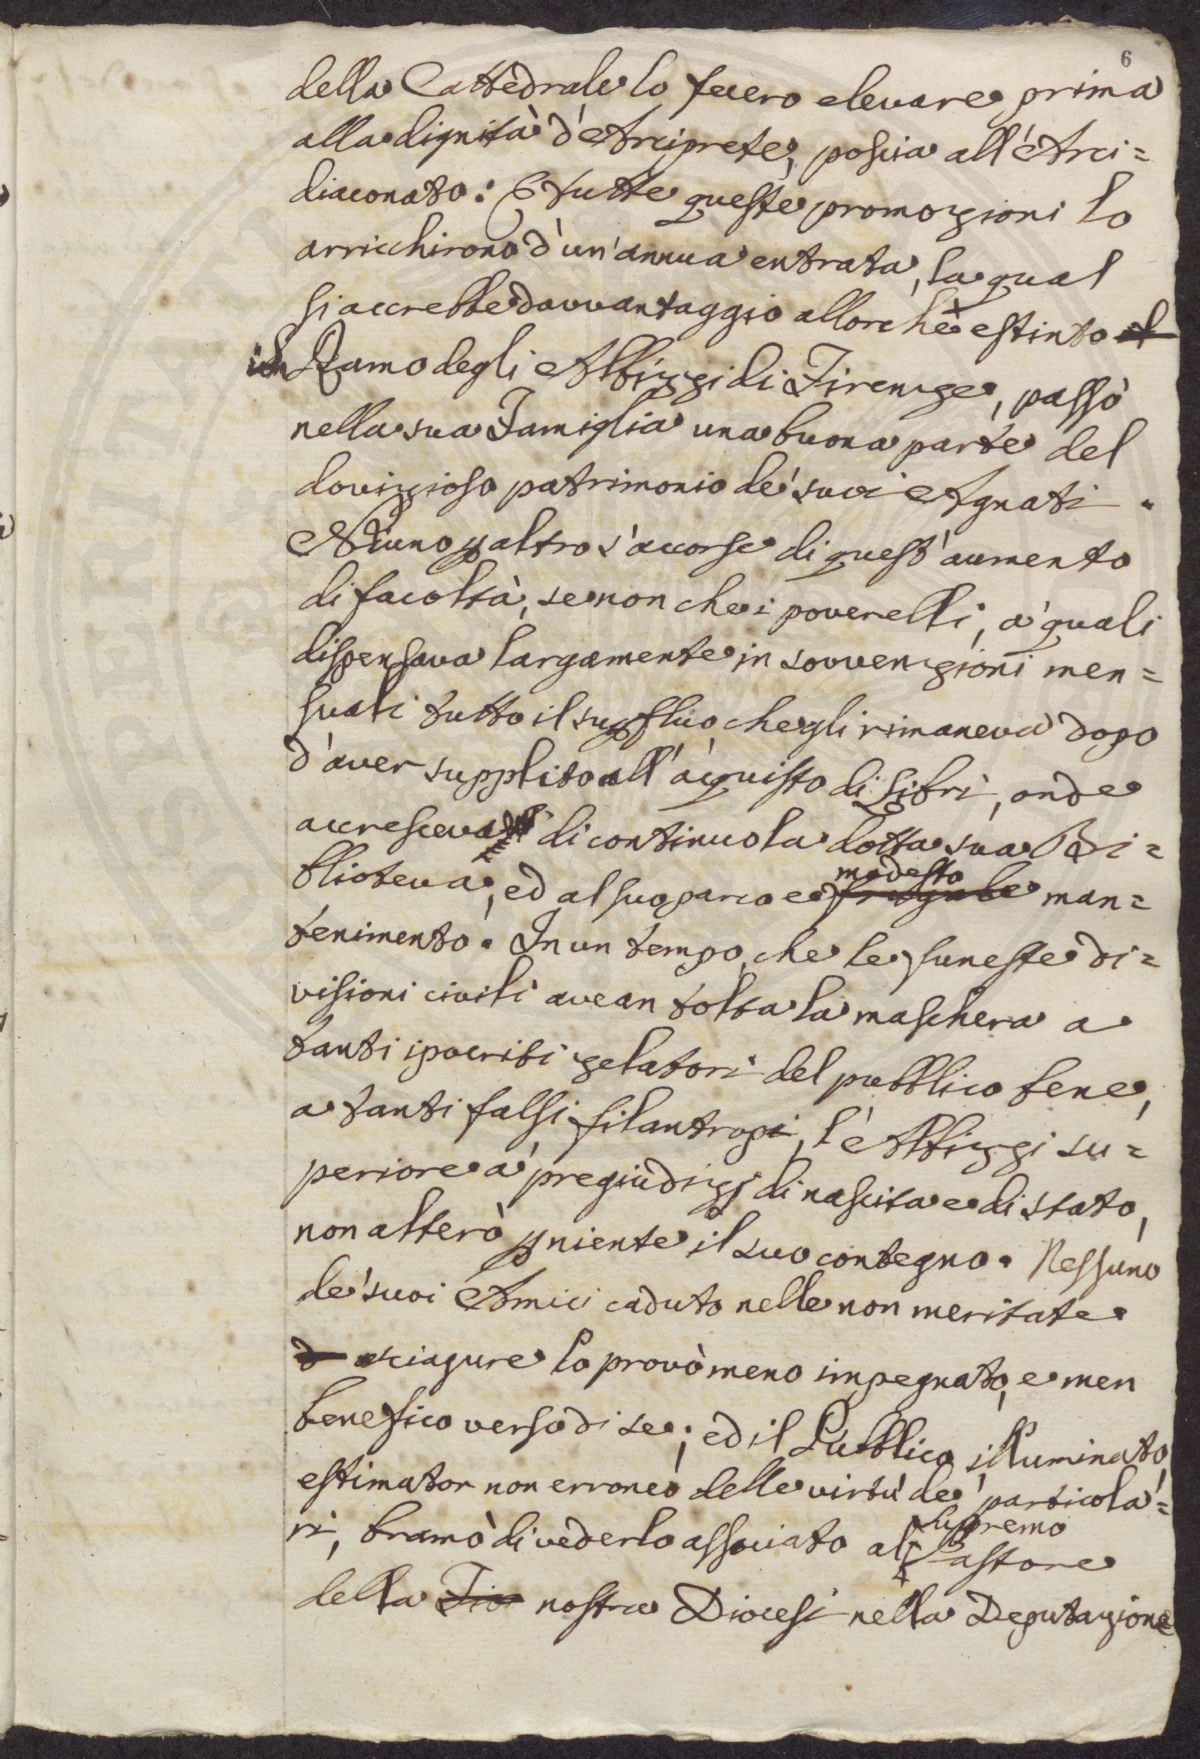 6
della Cattedrale lo fecero elevare prima
alla dignità d'Arciprete, poscia all'Arci=
diaconato: E tutte queste promozioni lo
arricchirono d'un'annua entrata, la qual
si accrebbe davvantaggio allorchè estinto il
un Ramo degli Albizzi di Firenze, passò
nella sua Famiglia una buona parte del
dovizioso patrimonio de' suoi Agnati.
Niuno p altro s'accorse di quest'aumento
di facoltà, se non che i poverelli, a' quali
dispensava largamente in sovvenzioni men=
suali tutto il supfluo che gli rimaneva dopo
d'aver supplito all'acquisto di Libri, onde
accresceva di continuo la dotta sua Bi=
modesto
blioteca, ed al suo parco e frugale man=
tenimento. In un tempo, che le funeste di=
visioni civili avean tolta la maschera a
tanti ipocriti zelatori del pubblico bene,
a tanti falsi filantropi, l'Albizzi su=
periore a' pregiudizj di nascita e di stato,
non alterò p niente il suo contegno. Nessuno
de' suoi Amici caduto nelle non meritate
sciagure lo provò meno impegnato, e men
benefico verso di se; ed il Pubblico illuminato
estimator non erroneo delle virtù de' particola=
Supremo
ri, bramò di vederlo associato al Pastore
della Dio nostra Diocesi nella Deputazione